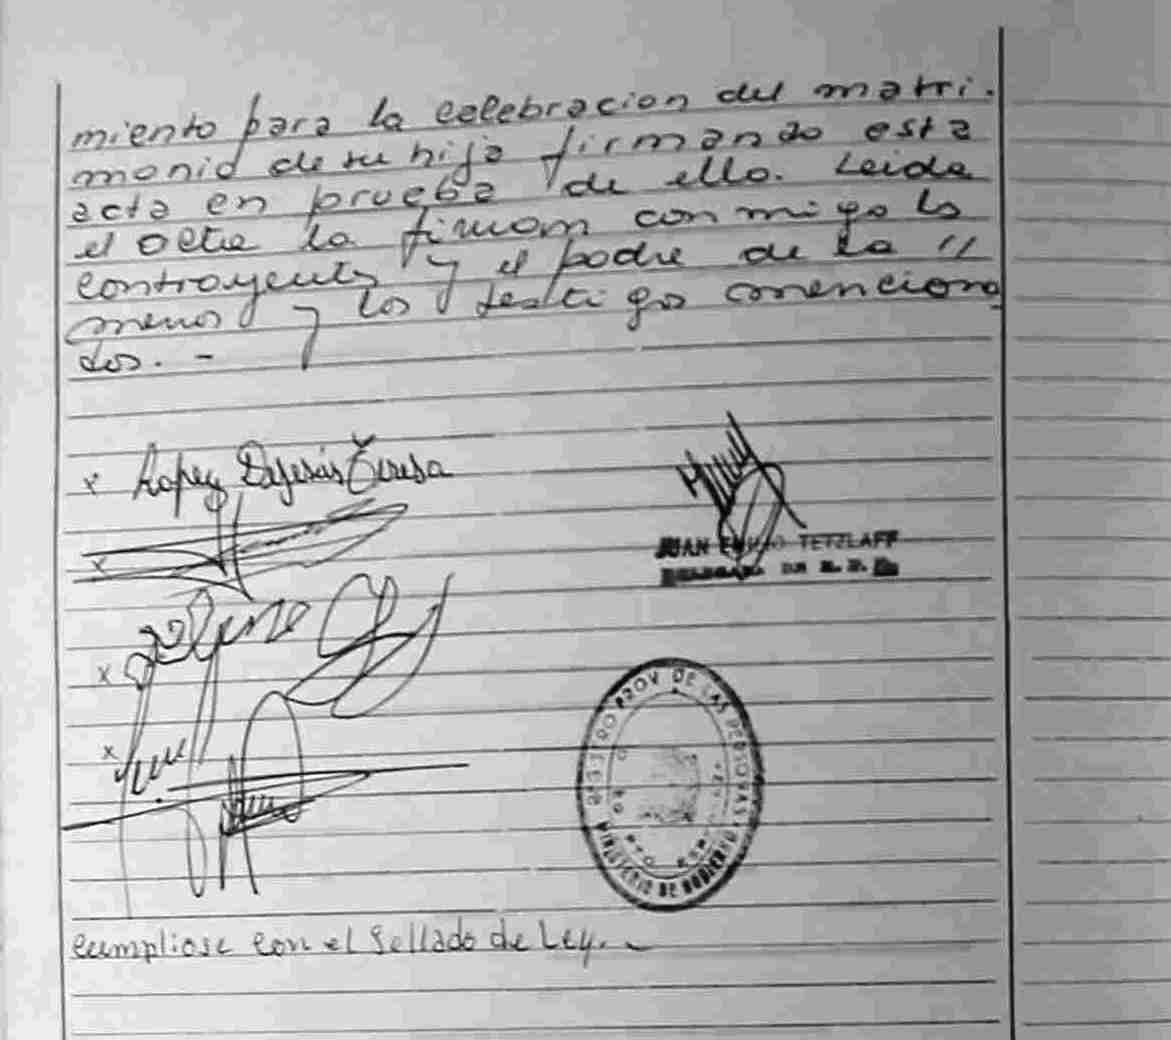 miento para la celebracion del matri-
monio de su hija firmando esta
acta en prueba de ello. Leida
el acta la firman conmigo los
contrayentes y el padre de la //
menor y los testigos comenciona
dos. -
x Lopez Dejesús Teresa
x
JUAN TETZLAFF
x
x
REGISTRO PROV. DE LAS PERSONAS
MINISTERIO DE GOBIERNO
cumpliose con el Sellado de Ley. -